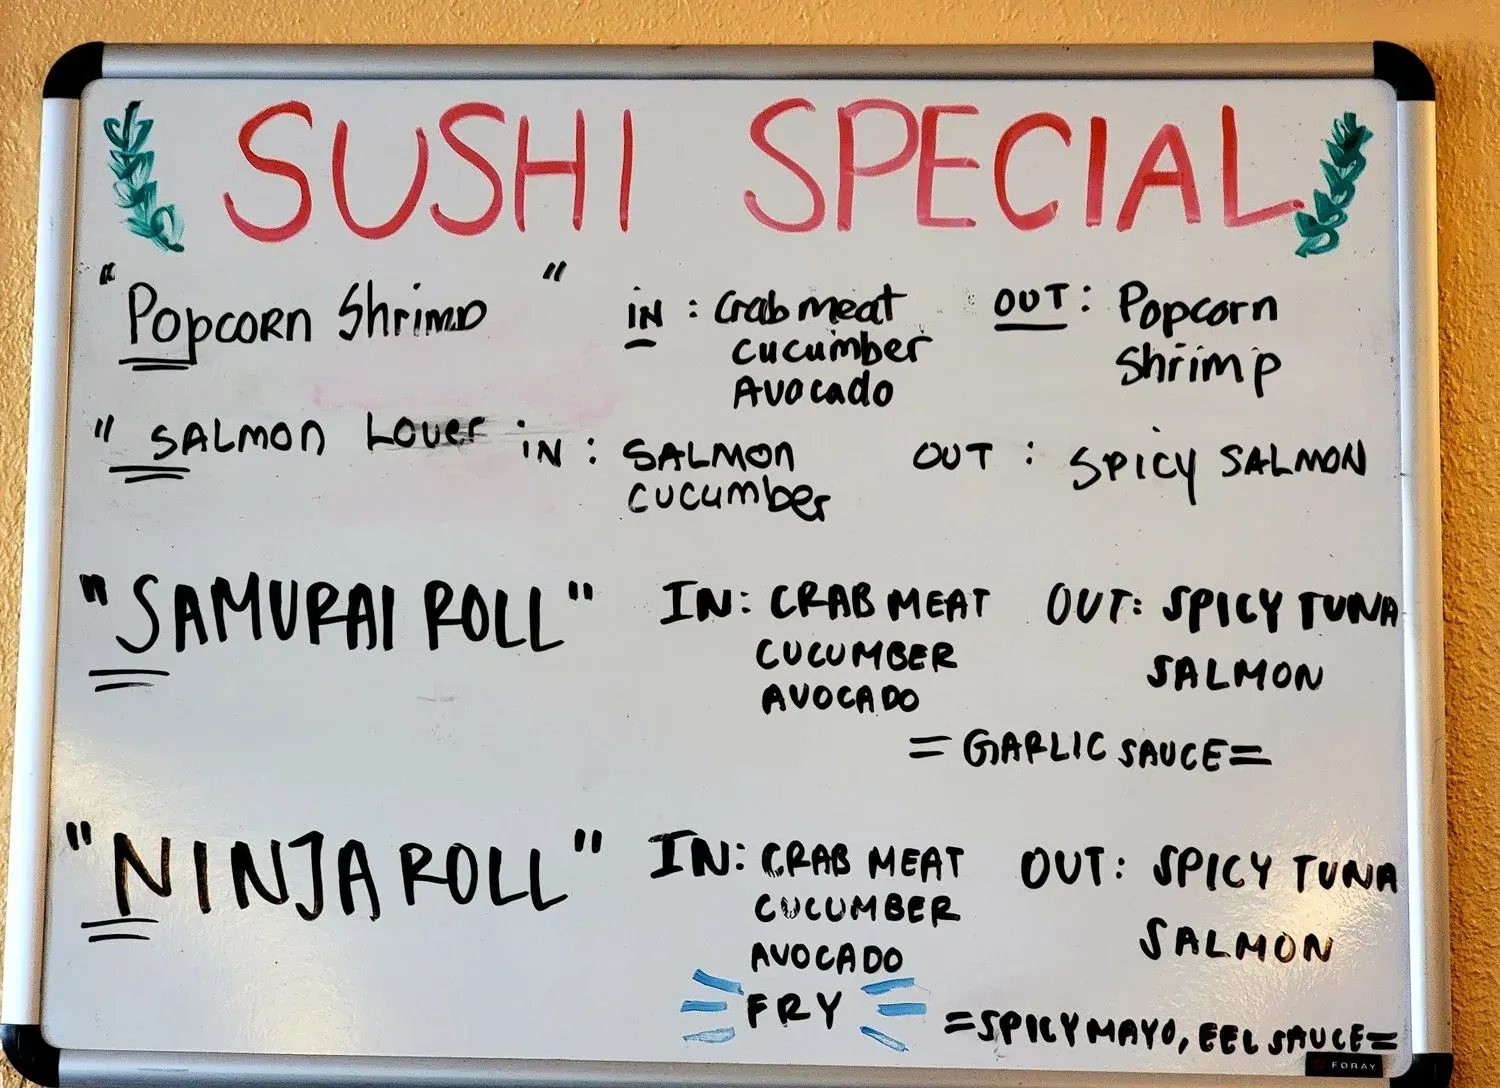 SUSHI SPECIAL
"Popcorn Shrimp" IN : Crab meat OUT : Popcorn
cucumber Shrimp
Avocado
" SALMON Lover IN : SALMON OUT : SPICY SALMON
cucumber
"SAMURAI ROLL" IN: CRAB MEAT OUT: SPICY TUNA
CUCUMBER SALMON
AVOCADO
= GARLIC SAUCE =
"NINJA ROLL" IN: CRAB MEAT OUT: SPICY TUNA
CUCUMBER SALMON
AVOCADO
FRY =SPICY MAYO, EEL SAUCE=
FORAY